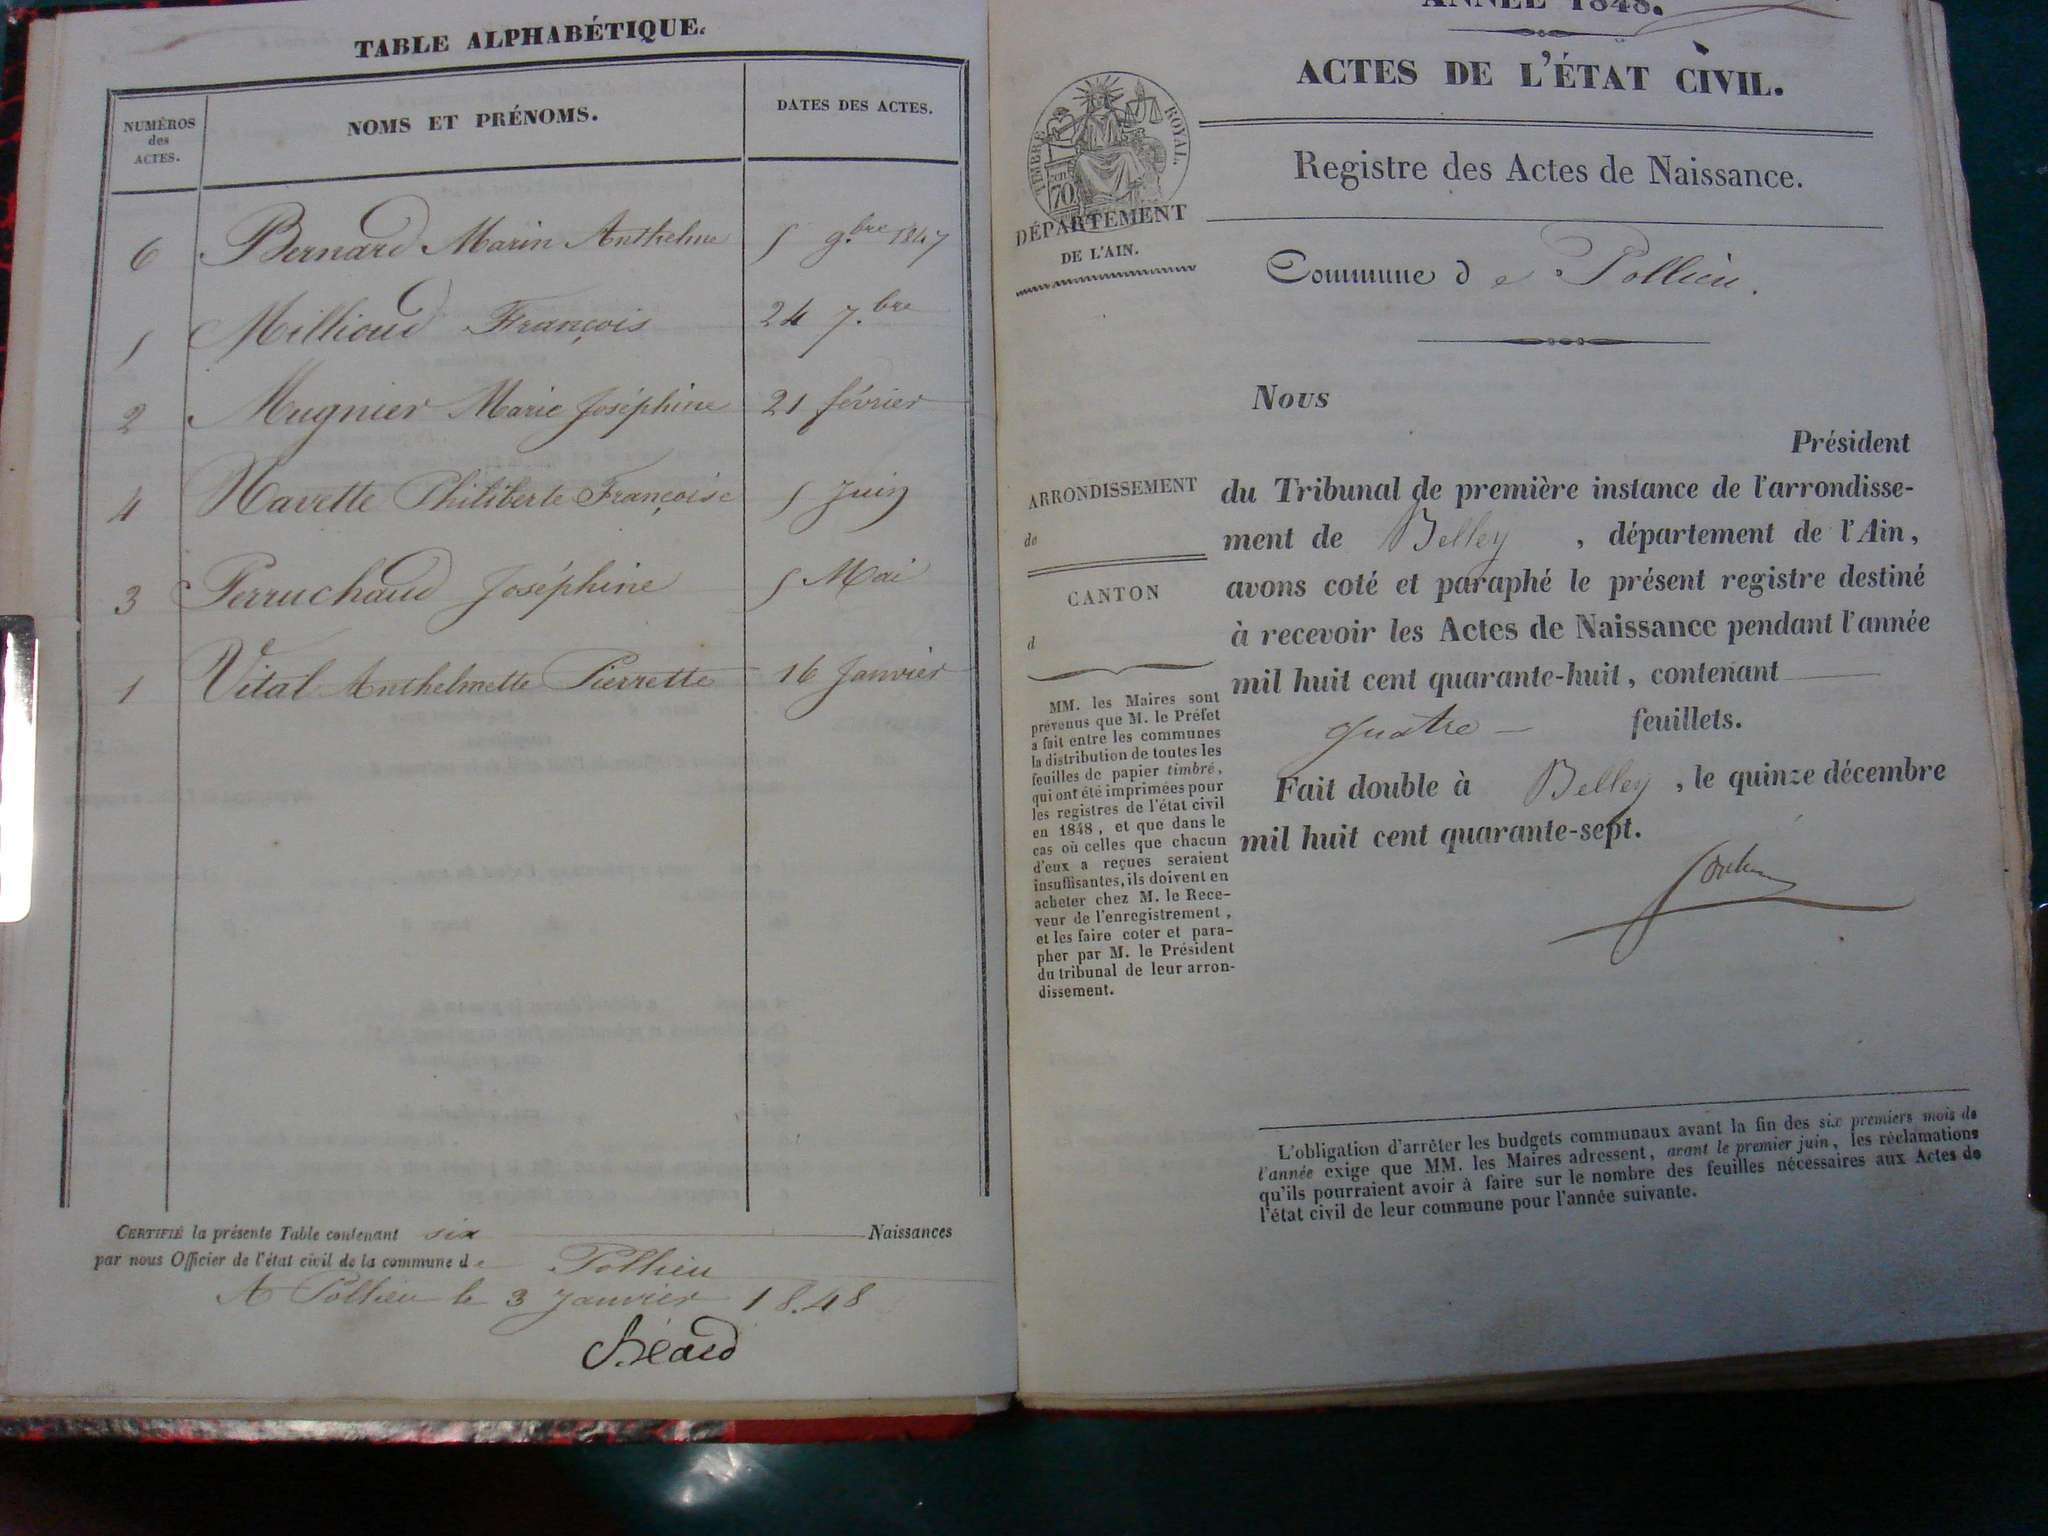 TABLE ALPHABÉTIQUE.
NUMÉROS des ACTES. NOMS ET PRÉNOMS. DATES DES ACTES.
6 Bernard Marin Anthelme 5 9.bre 1847
5 Millioud François 24 7.bre
2 Mugnier Marie Joséphine 21 février
4 Navette Philiberte Françoise 5 Juin
3 Perruchaud Joséphine 5 Mai
1 Vital Anthelmette Pierrette 16 Janvier
CERTIFIÉ la présente Table contenant six Naissances
par nous Officier de l'état civil de la commune de Pollieu
A Pollieu le 3 Janvier 1848
ANNÉE 1848.
ACTES DE L'ÉTAT CIVIL.
TIMBRE ROYAL.
70
DÉPARTEMENT
DE L'AIN.
Registre des Actes de Naissance.
Commune de Pollieu.
Nous
Président
du Tribunal de première instance de l'arrondisse-
ment de Belley, département de l'Ain,
avons coté et paraphé le présent registre destiné
à recevoir les Actes de Naissance pendant l'année
mil huit cent quarante-huit, contenant
quatre feuillets.
Fait double à Belley, le quinze décembre
mil huit cent quarante-sept.
ARRONDISSEMENT
de
CANTON
d
MM. les Maires sont
prévenus que M. le Préfet
a fait entre les communes
la distribution de toutes les
feuilles de papier timbré,
qui ont été imprimées pour
les registres de l'état civil
en 1848, et que dans le
cas où celles que chacun
d'eux a reçues seraient
insuffisantes, ils doivent en
acheter chez M. le Rece-
veur de l'enregistrement,
et les faire coter et para-
pher par M. le Président
du tribunal de leur arron-
dissement.
L'obligation d'arrêter les budgets communaux avant la fin des six premiers mois de
l'année exige que MM. les Maires adressent, avant le premier juin, les réclamations
qu'ils pourraient avoir à faire sur le nombre des feuilles nécessaires aux Actes de
l'état civil de leur commune pour l'année suivante.